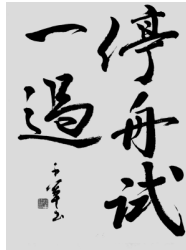 停舟試
一過